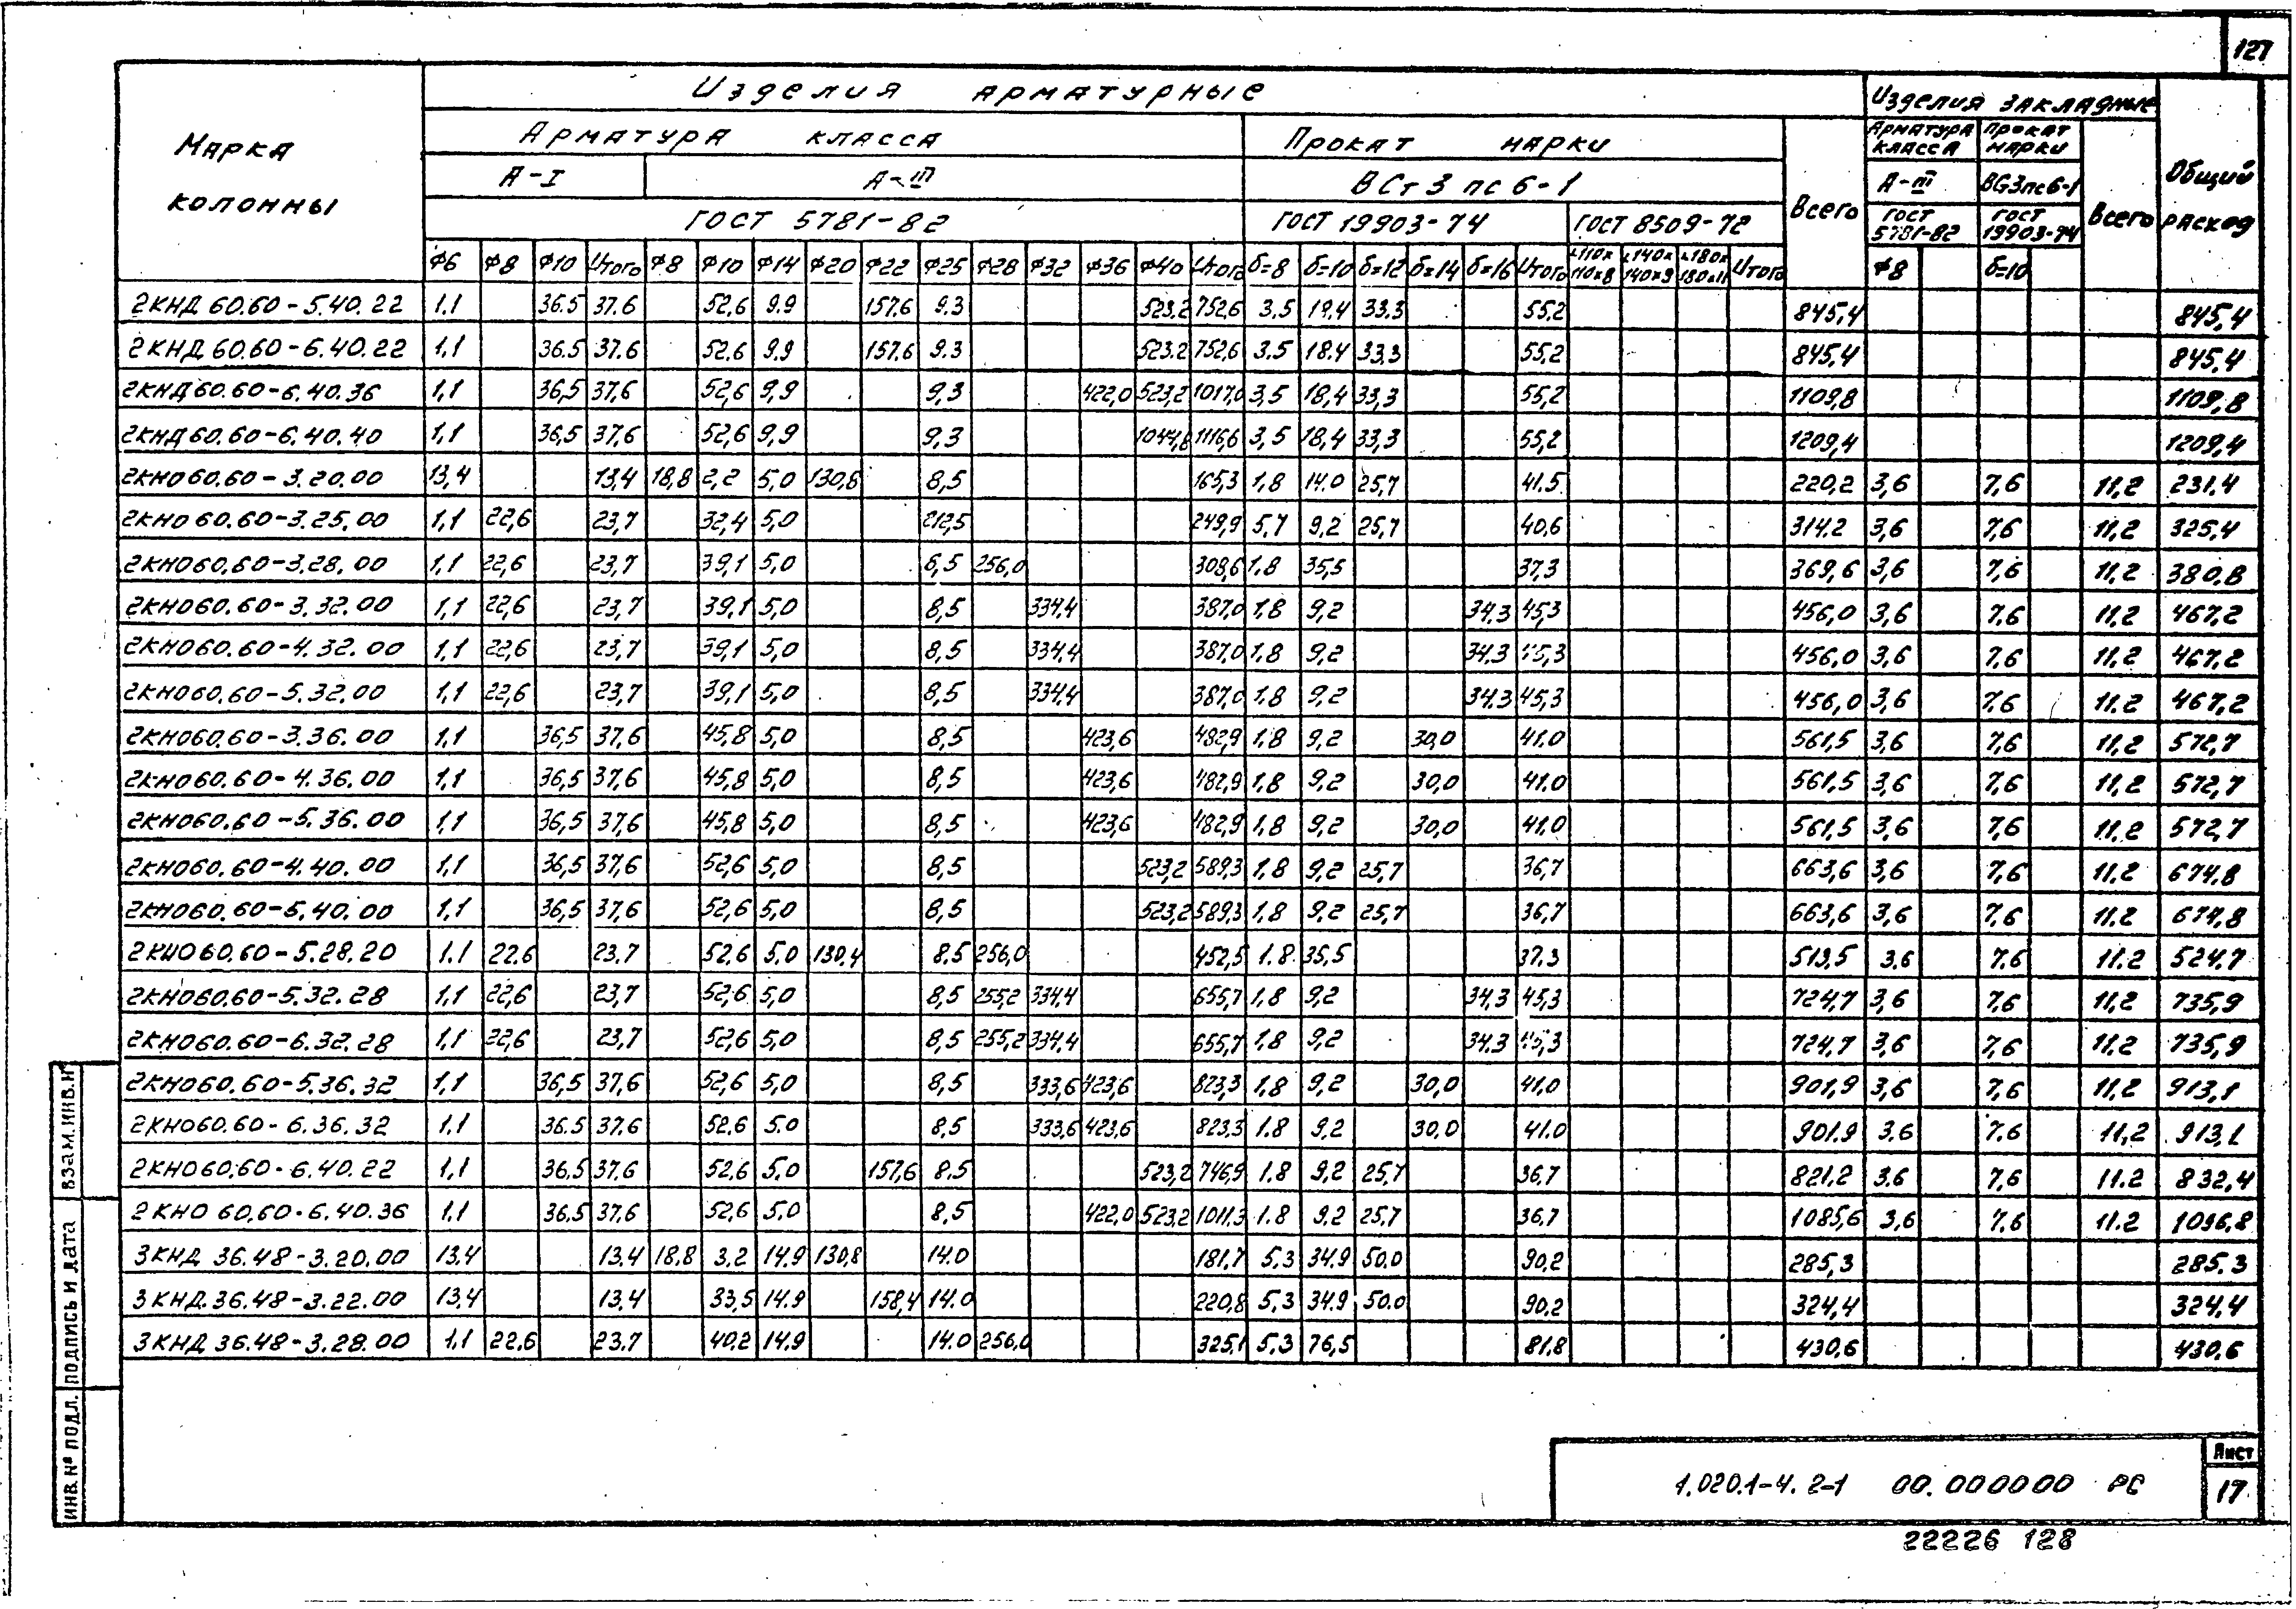 127
Марка колонны
Изделия арматурные
Изделия закладные
Общий расход
Арматура класса
Прокат марки
Всего
Арматура класса
Прокат марки
Всего
А-I
А-III
ВСт3пс6-1
А-III
ВСт3пс6-1
ГОСТ 5781-82
ГОСТ 19903-74
ГОСТ 8509-72
ГОСТ 5781-82
ГОСТ 19903-74
Ф6 Ф8 Ф10 Итого Ф8 Ф10 Ф14 Ф20 Ф22 Ф25 Ф28 Ф32 Ф36 Ф40 Итого б=8 б=10 б=12 б=14 б=16 Итого ∟110х110х8 ∟140х140х9 ∟180х180х11 Итого Ф8 б=10
2КНД 60.60-5.40.22 1,1 36.5 37.6 52,6 9.9 157.6 9.3 523.2 752,6 3,5 18.4 33.3 55,2 845,4 845,4
2КНД 60.60-6.40.22 1,1 36.5 37.6 52,6 9.9 157.6 9.3 523.2 752,6 3.5 18.4 33.3 55,2 845,4 845,4
2КНД 60.60-6.40.36 1,1 36,5 37,6 52,6 9,9 9,3 422,0 523,2 1017,0 3,5 18,4 33,3 55,2 1109,8 1109,8
2КНД 60.60-6.40.40 1,1 36,5 37,6 52,6 9,9 9,3 1044,8 1116,6 3,5 18,4 33,3 55,2 1209,4 1209,4
2КНО 60.60-3.20.00 13,4 13,4 18,8 2,2 5,0 130,8 8,5 165,3 1,8 14.0 25,7 41.5 220,2 3,6 7,6 11,2 231.4
2КНО 60.60-3.25.00 1,1 22,6 23,7 32,4 5,0 212,5 249,9 5,7 9,2 25,7 40,6 314.2 3,6 7,6 11,2 325,4
2КНО 60.60-3.28.00 1,1 22,6 23,7 39,1 5,0 8,5 256,0 308,6 1,8 35,5 37,3 369,6 3,6 7,6 11,2 380,8
2КНО 60.60-3.32.00 1,1 22,6 23,7 39,1 5,0 8,5 334,4 387,0 1,8 9,2 34.3 45,3 456,0 3,6 7,6 11,2 467,2
2КНО 60.60-4.32.00 1,1 22,6 23,7 39,1 5,0 8,5 334,4 387,0 1,8 9,2 34.3 45,3 456,0 3,6 7,6 11,2 467,2
2КНО 60.60-5.32.00 1,1 22,6 23,7 39,1 5,0 8,5 334,4 387,0 1,8 9,2 34.3 45,3 456,0 3,6 7,6 11.2 467,2
2КНО 60.60-3.36.00 1,1 36,5 37,6 45,8 5,0 8,5 423,6 482,9 1,8 9,2 30,0 41.0 561,5 3,6 7,6 11,2 572,7
2КНО 60.60-4.36.00 1,1 36,5 37,6 45,8 5,0 8,5 423,6 482,9 1,8 9,2 30,0 41.0 561,5 3,6 7,6 11,2 572,7
2КНО 60.60-5.36.00 1,1 36,5 37,6 45,8 5,0 8,5 423,6 482,9 1,8 9,2 30,0 41.0 561,5 3,6 7,6 11,2 572,7
2КНО 60.60-4.40.00 1,1 36,5 37,6 52,6 5,0 8,5 523,2 589,3 1,8 9,2 25,7 36,7 663,6 3,6 7,6 11.2 674,8
2КНО 60.60-5.40.00 1,1 36,5 37,6 52,6 5,0 8,5 523,2 589,3 1,8 9,2 25,7 36,7 663,6 3,6 7,6 11.2 674,8
2КНО 60.60-5.28.20 1.1 22.6 23.7 52,6 5,0 130,4 8.5 256,0 452,5 1.8 35,5 37.3 513,5 3.6 7,6 11.2 524,7
2КНО 60.60-5.32.28 1,1 22,6 23,7 52,6 5,0 8,5 255,2 334,4 655,7 1,8 9,2 34,3 45,3 724,7 3,6 7,6 11,2 735,9
2КНО 60.60-6.32.28 1,1 22,6 23,7 52,6 5,0 8,5 255,2 334,4 655,7 1,8 9,2 34.3 45,3 724,7 3,6 7,6 11,2 735,9
2КНО 60.60-5.36.32 1,1 36,5 37,6 52,6 5,0 8,5 333,6 423,6 823,3 1,8 9,2 30,0 41,0 901,9 3,6 7,6 11,2 913,1
2КНО 60.60-6.36.32 1.1 36.5 37.6 52.6 5.0 8,5 333,6 423,6 823.3 1.8 9,2 30,0 41.0 901.9 3,6 7.6 11,2 913,1
2КНО 60.60-6.40.22 1,1 36.5 37.6 52,6 5,0 157,6 8.5 523,2 746,9 1.8 9,2 25,7 36,7 821,2 3.6 7,6 11.2 832,4
2КНО 60.60-6.40.36 1.1 36.5 37.6 52,6 5,0 8,5 422,0 523,2 1011,3 1.8 9.2 25,7 36,7 1085,6 3,6 7.6 11.2 1096,8
3КНД 36.48-3.20.00 13.4 13.4 18.8 3,2 14.9 130,8 14.0 181.7 5.3 34.9 50.0 90,2 285,3 285.3
3КНД 36.48-3.22.00 13,4 13,4 33,5 14.9 158,4 14.0 220,8 5,3 34.9 50.0 90,2 324,4 324,4
3КНД 36.48-3.28.00 1,1 22,6 23.7 40,2 14,9 14.0 256,0 325,1 5,3 76,5 81,8 430,6 430,6
ИНВ.№ ПОДЛ. ПОДПИСЬ И ДАТА ВЗАМ.ИНВ.№
1.020.1-4. 2-1 00.000000 РС
Лист
17
22226 128